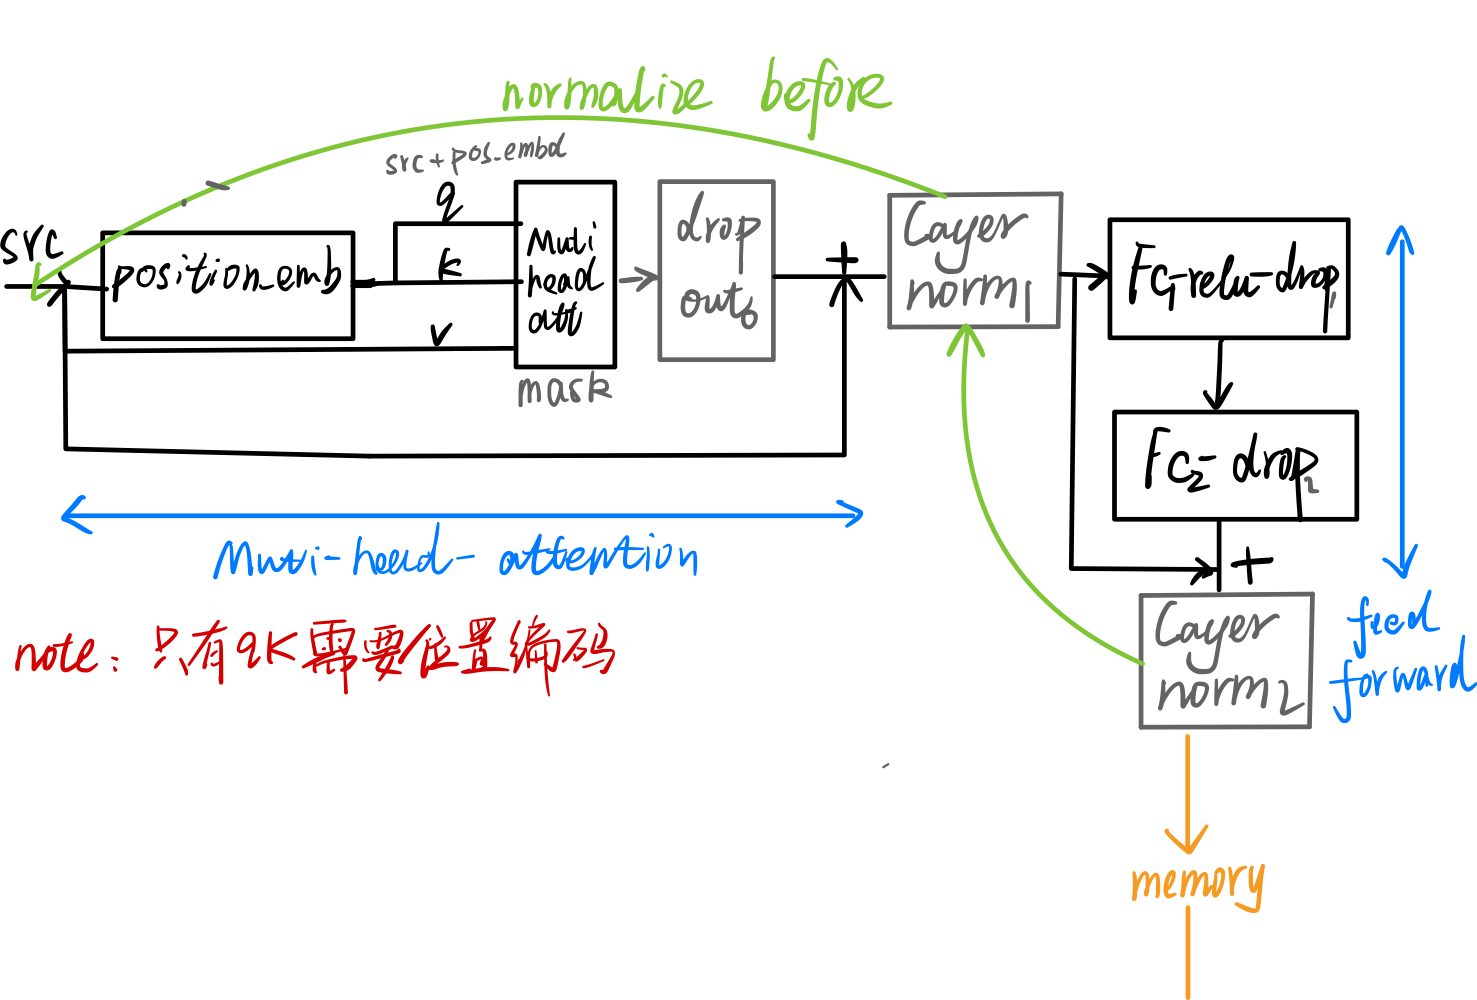 normalize before
src+pos_embd
src
position_emb
q
k
v
Muti
head
att
mask
drop
out0
+
Layer
norm1
Fc1-relu-drop1
Fc2-drop2
+
Layer
norm2
Muti-head-attention
feed
forward
note: 只有qK需要位置编码
memory